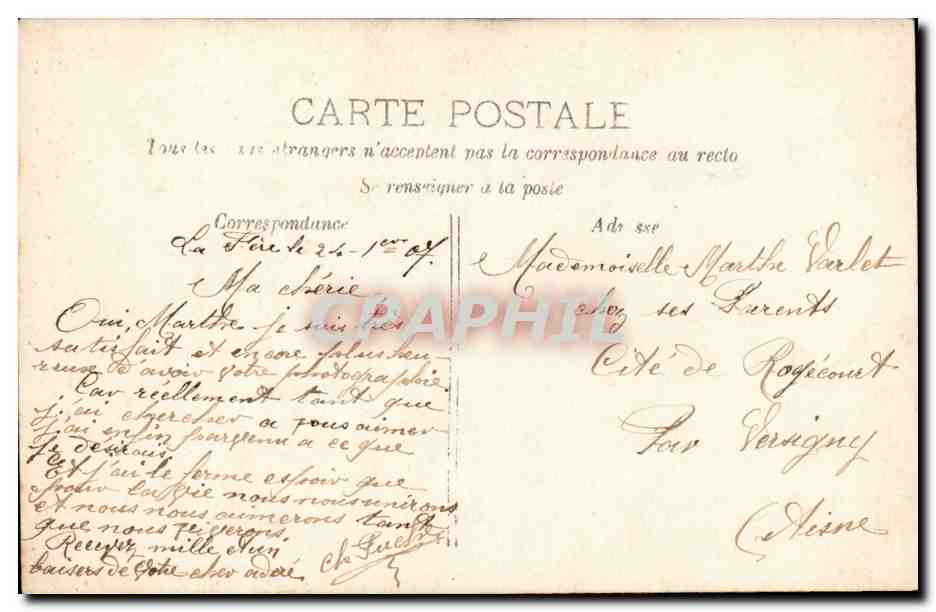 CARTE POSTALE
étrangers n'acceptent pas la correspondance au recto
Se renseigner à la poste
Correspondance
La Fère le 24 - 1er 07.
Ma chérie
Oui, Marthe je suis très
satisfait et encore plus heu-
reuse d'avoir votre photographie.
Car réellement tant que
j'ai chercher a vous aimer
j'ai enfin parvenu a ce que
je désirais.
Et j'ai le ferme espoir que
pour la vie nous nous unirons
et nous nous aimerons tant
que nous
Recevez mille et un
baisers de votre cher adoré
Ch
Adresse
Mademoiselle Marthe Varlet
chez ses Parents
Cité de Rogécourt
Par Versigny
(Aisne
CPAPHIL